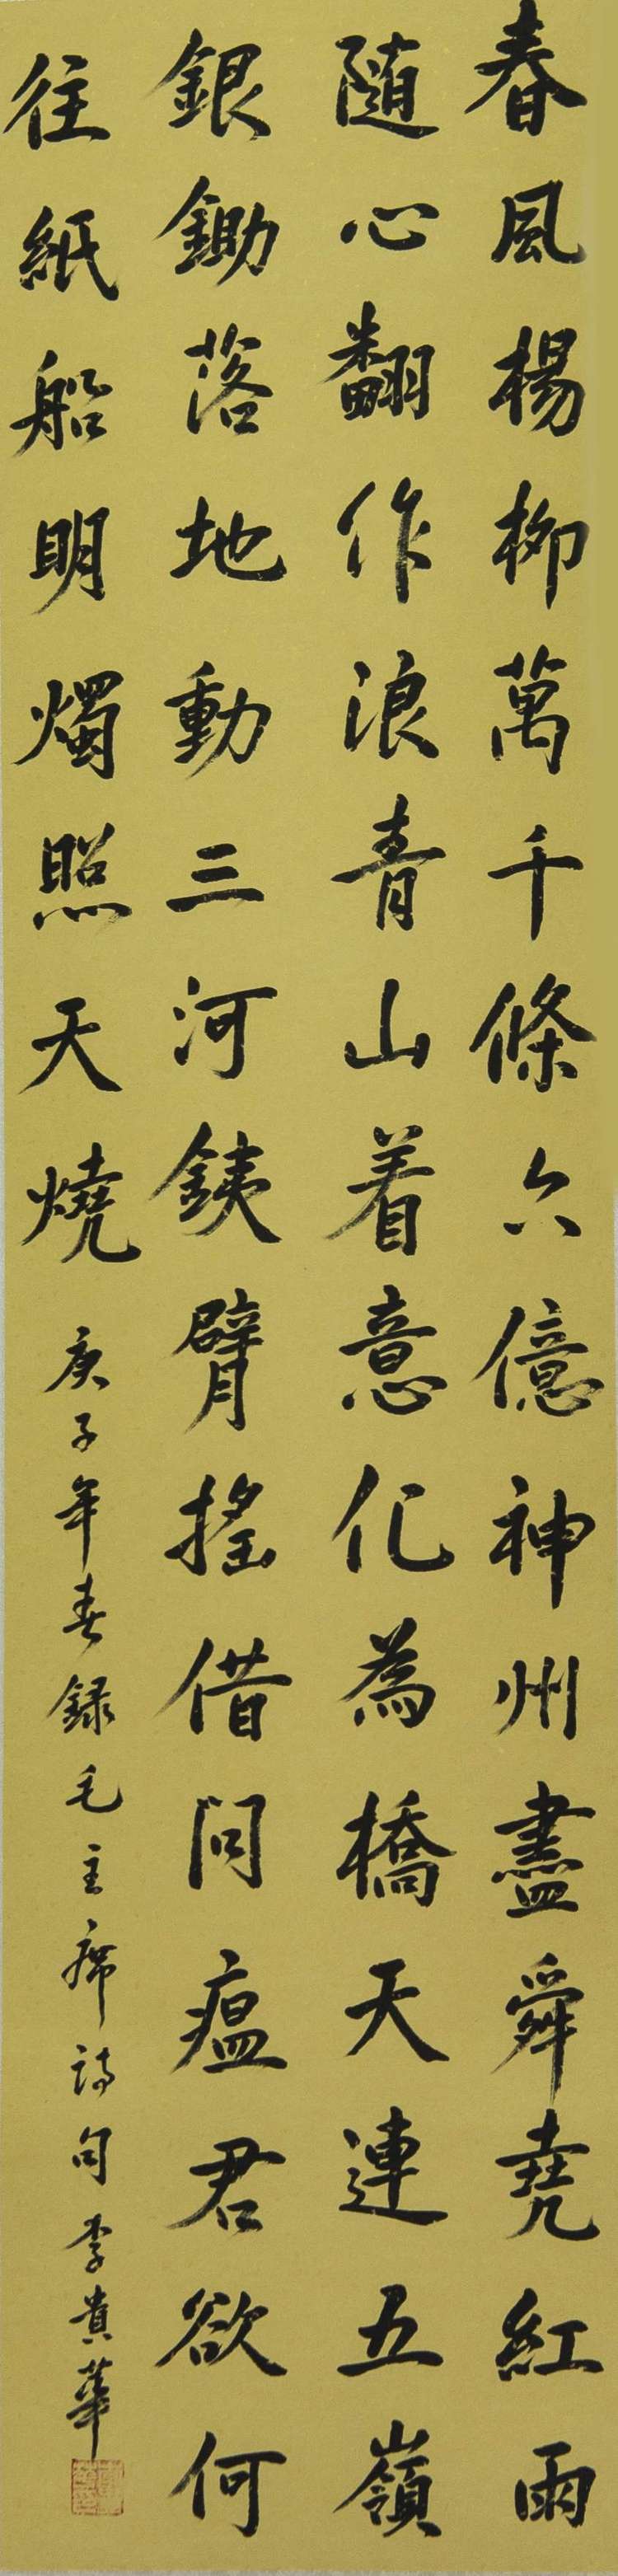 春風楊柳萬千條六億神州盡舜堯紅雨
随心翻作浪青山着意化為橋天連五嶺
銀鋤落地動三河鐵臂搖借問瘟君欲何
往紙船明燭照天燒 庚子年春録毛主席詩句 李貴華